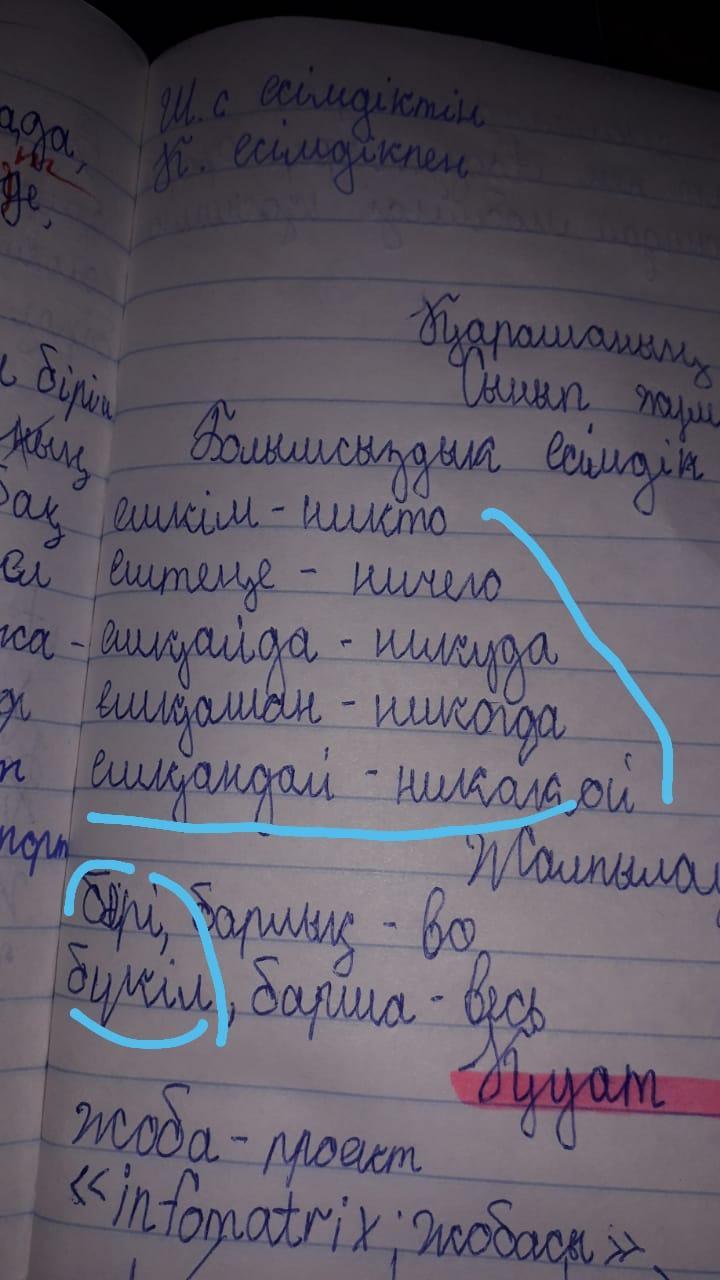 Ш. с есімдіктің
К. есімдікпен
ада,
де,
Қарашаның
бірін
Сынып жұм
жың
Болымсыздық есімдік
бақ ешкім - никто
ештеңе - ничего
са - ешқайда - никуда
ешқашан - никогда
ешқандай - никакой
порт
Жалпылау
бәрі, барлық - во
бүкіл, барша - весь
Қуат
жоба - проект
«infomatrix; жобасы»